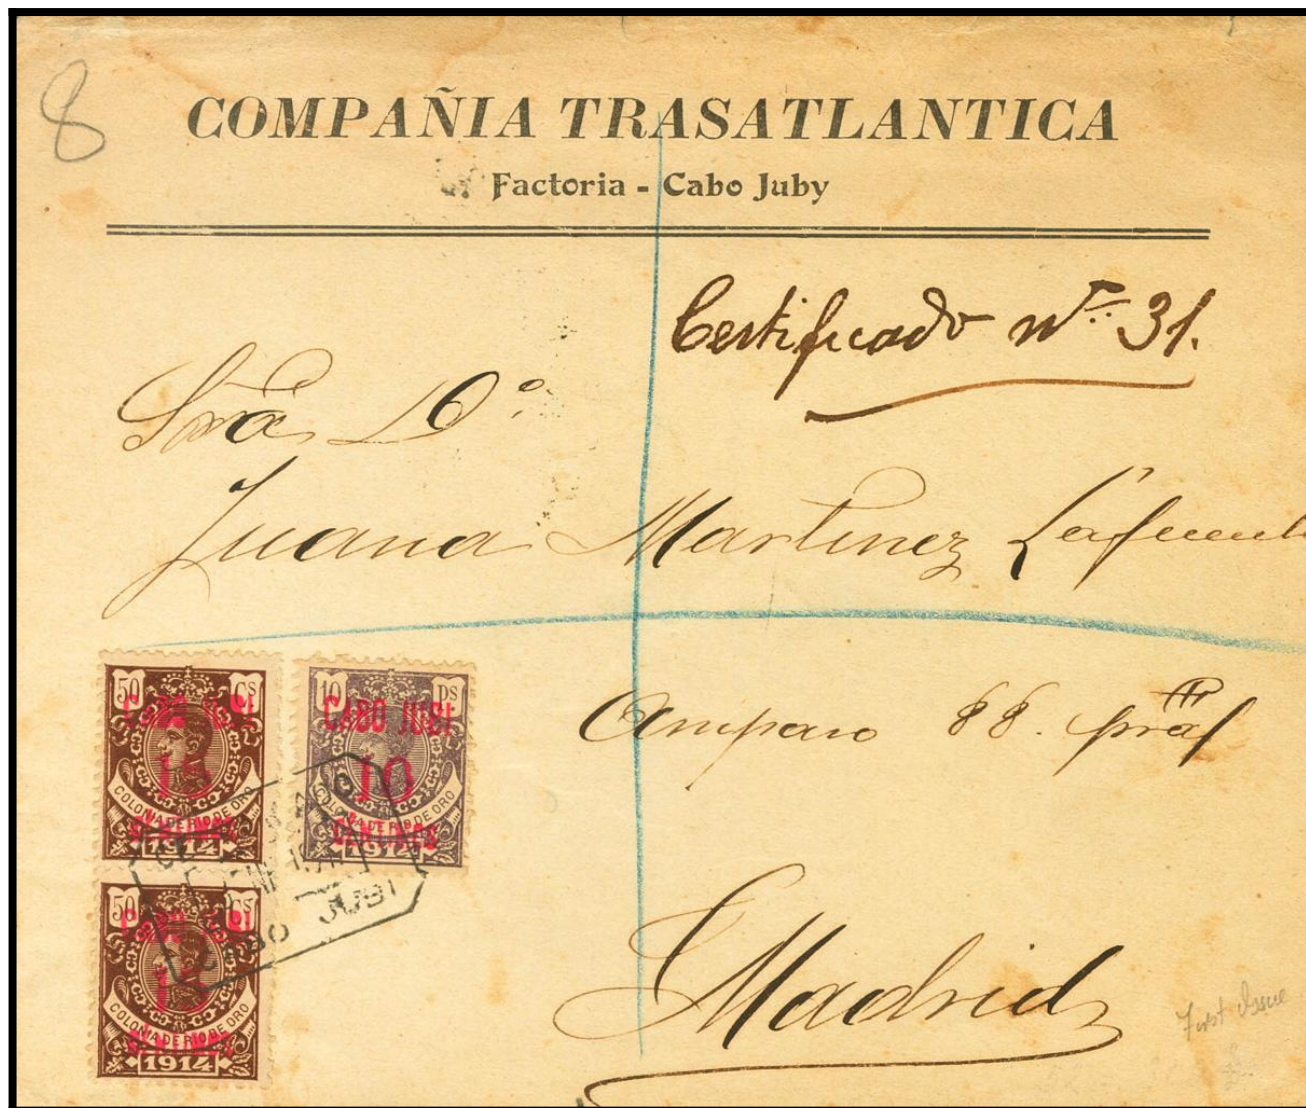 8
COMPAÑIA TRASATLANTICA
Factoria - Cabo Juby
Certificado Nº 31.
Sra Dª
Juana Martinez Lafuente
Amparo 88. pral
Madrid
50 Cs
CABO JUBI
COLONIA DE RIO DE ORO
1914
10 Ps
CABO JUBI
10
CENTIMOS
COLONIA DE RIO DE ORO
1914
CABO JUBI
50 Cs
CABO JUBI
COLONIA DE RIO DE ORO
1914
First Issue